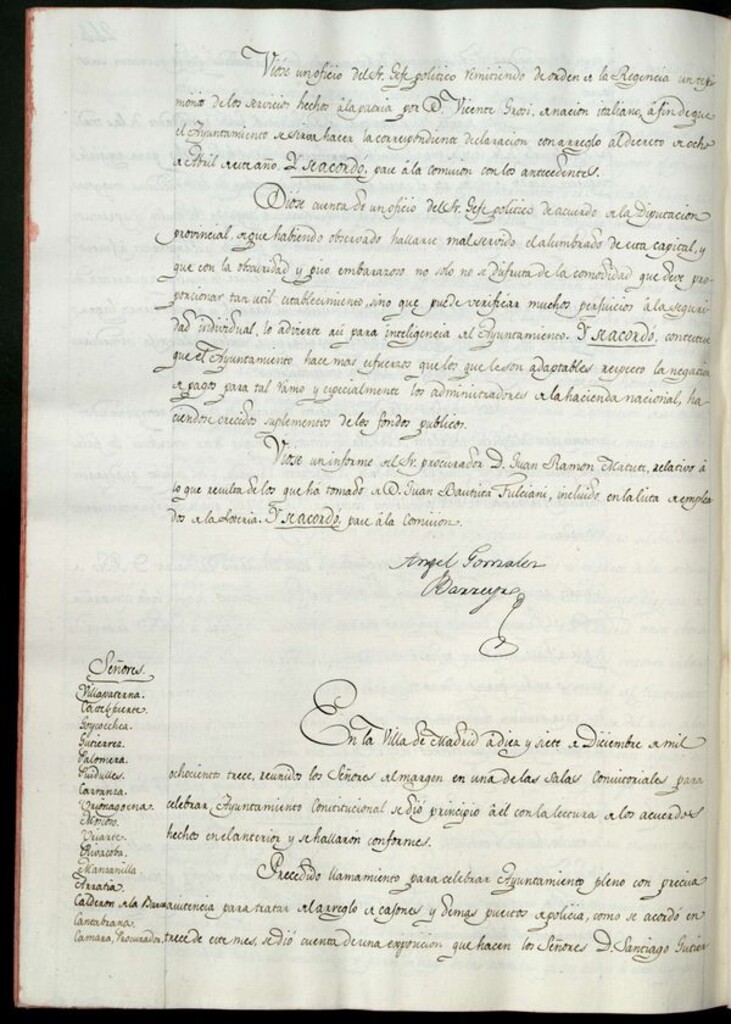 Vióse un oficio del Sr. Gefe politico remitiendo de orden de la Regencia un testi
monio de los servicios hechos á la patria por D. Vicente Grosi, de nacion italiano, á fin de que
el Ayuntamiento se sirva hacer la correspondiente declaracion con arreglo al decreto de ocho
de Abril de este año. Y se acordó, pase á la comision con los antecedentes.
Dióse cuenta de un oficio del Sr. Gefe politico de acuerdo de la Diputacion
provincial, de que habiendo observado hallarse mal servido el alumbrado de esta capital, y
que con la obscuridad y piso embarazoso no solo no se disfruta de la comodidad que deve pro
porcionar tan util establecimiento, sino que puede verificar muchos perjuicios á la seguri
dad individual, lo advierte asi para inteligencia del Ayuntamiento. Y se acordó, conteste
que el Ayuntamiento hace mas esfuerzos que los que le son adaptables respecto la negacion
de pagos para tal ramo y especialmente los administradores de la hacienda nacional, ha
ciendose crecidos suplementos de los fondos publicos.
Vióse un informe del Sr. procurador D. Juan Ramon Matute, relativo á
lo que resulta de los que ha tomado de D. Juan Bautista Fulciani, incluido en la lista de emplea
dos de la Loteria. Y se acordó, pase á la Comision.
Angel Gonzalez
Barreyro
Señores.
Villapaterna.
Castelfuerte.
Goycoechea.
Gutierrez.
Palomera.
Puidulles.
Carranza.
Urionagoena.
Uriarte.
Rivacoba.
Manzanilla
Arratia.
Calderon de la Barca
Cantabrana.
Camara, Procurador.
En la Villa de Madrid á diez y siete de Diciembre de mil
ochociento trece, reunidos los Señores del margen en una de las Salas Consistoriales para
celebrar Ayuntamiento Constitucional se dió principio á él con la lectura de los acuerdos
hechos en el anterior y se hallaron conformes.
Precedido llamamiento para celebrar Ayuntamiento pleno con precisa
asistencia para tratar del arreglo de cajones y demas puestos de policia, como se acordó en
trece de este mes, se dió cuenta de una exposicion que hacen los Señores D. Santiago Gutier